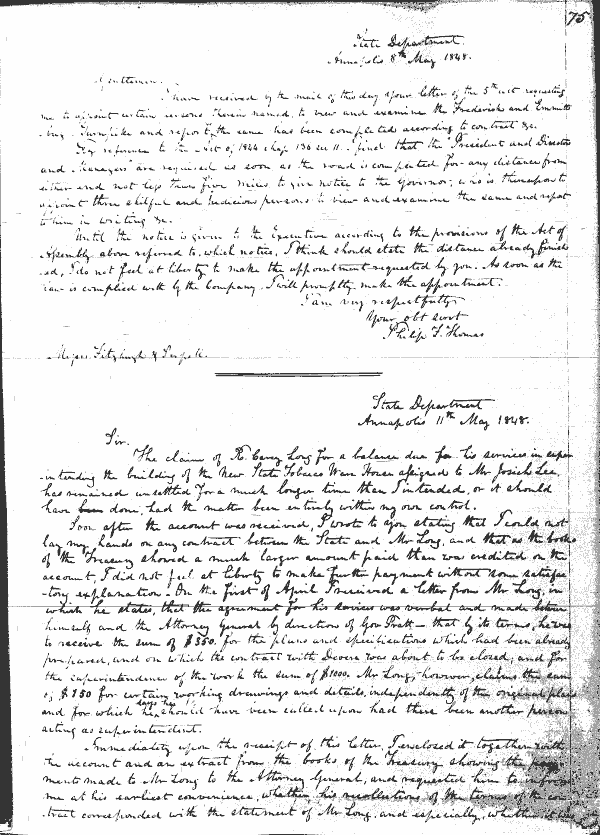 75
State Department.
Annapolis 8th May 1848.
Gentlemen.
I have received by the mail of this day your letter of the 5th inst requesting
me to appoint certain persons therein named, to view and examine the Frederick and Emmitts
-burg Turnpike and report, the same has been completed according to contract &c.
By reference to the Act of 1844 chap 130 sec 11. I find that the President and Directors
and "Managers" are required as soon as the road is completed for any distance from
either end not less than five miles to give notice to the Governor, who is thereupon to
appoint three skilful and Judicious persons to view and examine the same and report
to him in writing &c.
Until the notice is given to the Executive according to the provisions of the Act of
Assembly above referred to, which notice, I think should state the distance already finish
ed, I do not feel at liberty to make the appointment requested by you. As soon as the
law is complied with by the Company, I will promptly make the appointment.
I am very respectfully
Your obt servt
Philip F. Thomas
Messrs Fitzhugh &
State Department
Annapolis 11th May 1848.
Sir.
The claim of R. Carey Long for a balance due for his services in super
-intending the building of the New State Tobacco Ware House assigned to Mr Josiah Lee,
has remained unsettled for a much longer time than I intended, or it should
have been done, had the matter been entirely within my own control.
Soon after the account was received, I wrote to you stating that I could not
lay my hands on any contract between the State and Mr Long, and that as the books
of the Treasury showed a much larger amount paid than was credited on the
account, I did not feel at liberty to make further payment without some satisfac
-tory explanation. On the first of April I received a letter from Mr Long, in
which he states, that the agreement for his services was verbal and made between
himself and the Attorney General by directions of Gov Pratt - that by its terms, he was
to receive the sum of $350. for the plans and specifications which had been already
prepared, and on which the contract with Devere was about to be closed; and for
the superintendence of the work the sum of $1000. Mr Long, however, claims the sum
of $150 for certain working drawings and details, independently of the original plans
and for which says he, he should have been called upon had there been another person
acting as superintendent.
Immediately upon the receipt of this letter, I enclosed it together with
the account and an extract from the books of the Treasury showing the pay-
ments made to Mr Long to the Attorney General, and requested him to inform
me at his earliest convenience, whether his recollections of the terms of the con
tract corresponded with the statement of Mr Long, and especially, whether it